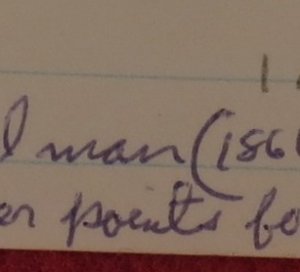 1
l man (186
er points fo